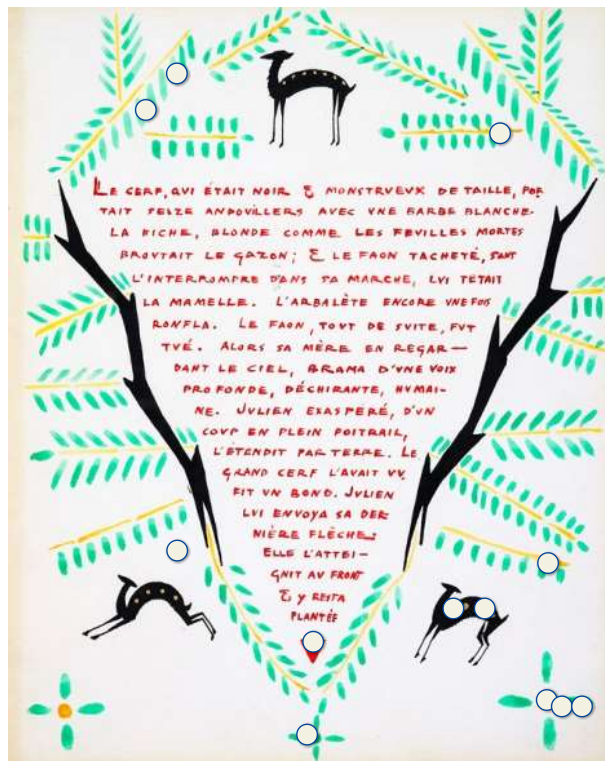 LE CERF, QUI ÉTAIT NOIR & MONSTRVEVX DE TAILLE, POR
TAIT SEIZE ANDOVILLERS AVEC VNE BARBE BLANCHE.
LA BICHE, BLONDE COMME LES FEVILLES MORTES
BROVTAIT LE GAZON; & LE FAON TACHETÉ, SANS
L'INTERROMPRE DANS SA MARCHE, LVI TÉTAIT
LA MAMELLE. L'ARBALÈTE ENCORE VNE FOIS
RONFLA. LE FAON, TOVT DE SVITE, FVT
TVÉ. ALORS SA MÈRE EN REGAR—
DANT LE CIEL, BRAMA D'VNE VOIX
PROFONDE, DÉCHIRANTE, HVMAI-
NE. JVLIEN EXASPÉRÉ, D'VN
COVP EN PLEIN POITRAIL,
L'ÉTENDIT PAR TERRE. LE
GRAND CERF L'AVAIT VV,
FIT VN BOND. JVLIEN
LVI ENVOYA SA DER
NIÈRE FLÈCHE;
ELLE L'ATTEI—
GNIT AV FRONT
& Y RESTA
PLANTÉE